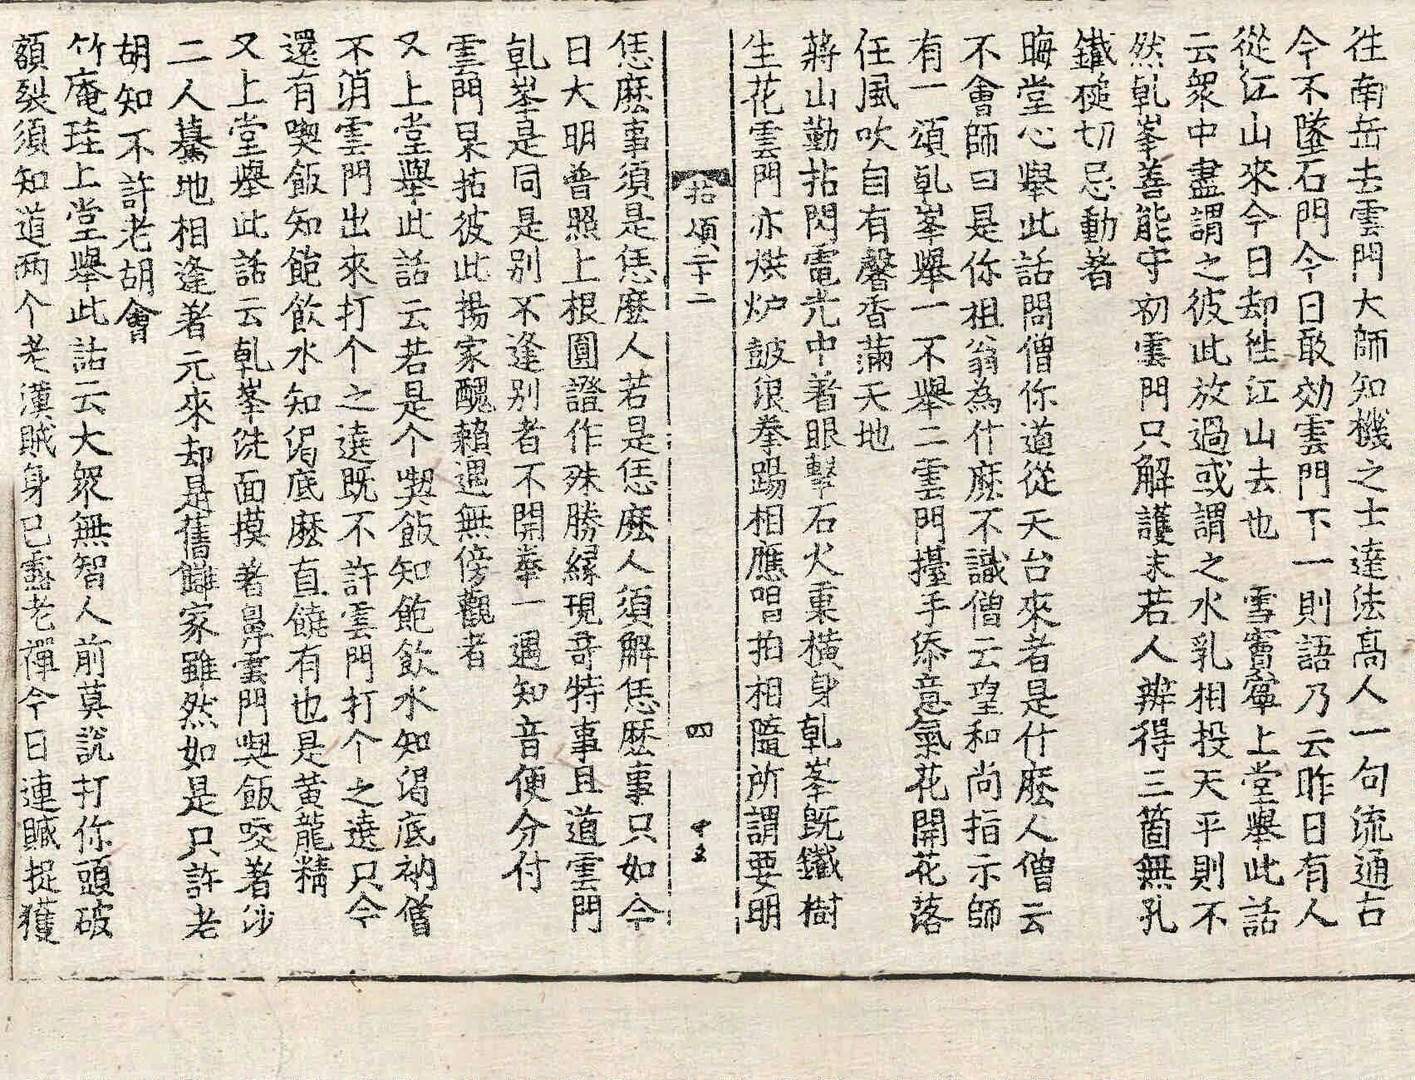 往南岳去雲門大師知機之士達法髙人一句流通古
今不墜石門今日敢効雲門下一則語乃云昨日有人
從江山來今日却徃江山去也　雪竇簟上堂舉此話
云衆中盡謂之彼此放過或謂之水乳相投天平則不
然乹峯善能守初雲門只解護末若人辨得三箇無孔
鐵槌切忌動著
晦堂心舉此話問僧你道從天台來者是什麽人僧云
不會師曰是你祖翁為什麽不識僧云望和尚指示師
有一頌乹峯舉一不舉二雲門擡手添意氣花開花落
任風吹自有馨香滿天地
蔣山勤拈閃電光中著眼擊石火裏橫身乹峯旣鐵樹
生花雲門亦烘炉皷浪拳踢相應唱拍相隨所謂要明
拈頌二十二　四　中玉
恁麽事須是恁麽人若是恁麽人須解恁麽事只如今
日大明普照上根圓證作殊勝縁現竒特事且道雲門
乹峯是同是别不逢别者不開拳一遇知音便分付
雲門杲拈彼此揚家醜賴遇無傍觀者
又上堂舉此話云若是个喫飯知飽飲水知渴底衲僧
不消雲門出來打个之遶既不許雲門打个之遶只今
還有喫飯知飽飮水知渴底麽直饒有也是黄龍精
又上堂舉此話云乹峯洗面摸著鼻雲門喫飯咬著沙
二人驀地相逢著元來却是舊讎家雖然如是只許老
胡知不許老胡會
竹庵珪上堂舉此話云大衆無智人前莫說打你頭破
額裂須知道两个老漢賊身已露老禪今日連贓捉獲